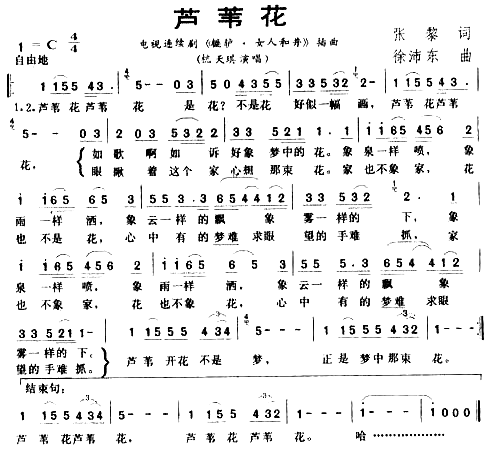 芦苇花
1 = C 4/4
电视连续剧《辘轳·女人和井》插曲
张黎 词
自由地
(忧天琪演唱)
徐沛东 曲
1 55 5 43. 5 - - 03 2 - 03 5. 3 5532 2 - - 1 55 5 43.
1.2.芦苇 花芦苇 花 是 花?不是花 好似一幅 画,芦苇 花芦苇
5 - - 03 2 03 2 5322 0 53 5532 1 - - 1 1 65 456
花,
如歌 啊如 诉好象 梦中的 花。象 泉一样 喷, 象
眼瞅 着这个 家心烟 那束 花。家 也不象 家,花
1 165 65 3 5 654 412 5 3 53 5532 2. 1
雨一样 洒, 象云一样的飘 象 雾一样的 下, 象
也不是 花, 心中 有的梦难 求眼 望的手难 抓,家
1 165 456 1 165 65 3 5 654 412
泉一样 喷, 象雨一样 洒, 象云一样的飘 象
也不象 家, 花也不象 花, 心中 有的梦难 求眼
33 521 1 - 1 55 5 434 5 - - - 1 55 5 434 5 - - -
雾一样的 下。
望的手难 抓。
芦苇 开花 不是 梦, 正是 梦中那束 花。
结束句:
1 55 5 434 5 - - - 1 55 5 434 5 - - 0 1 - - - 1 - - - 1000
芦苇 花芦苇 花, 芦苇 花芦苇 花。 哈………………